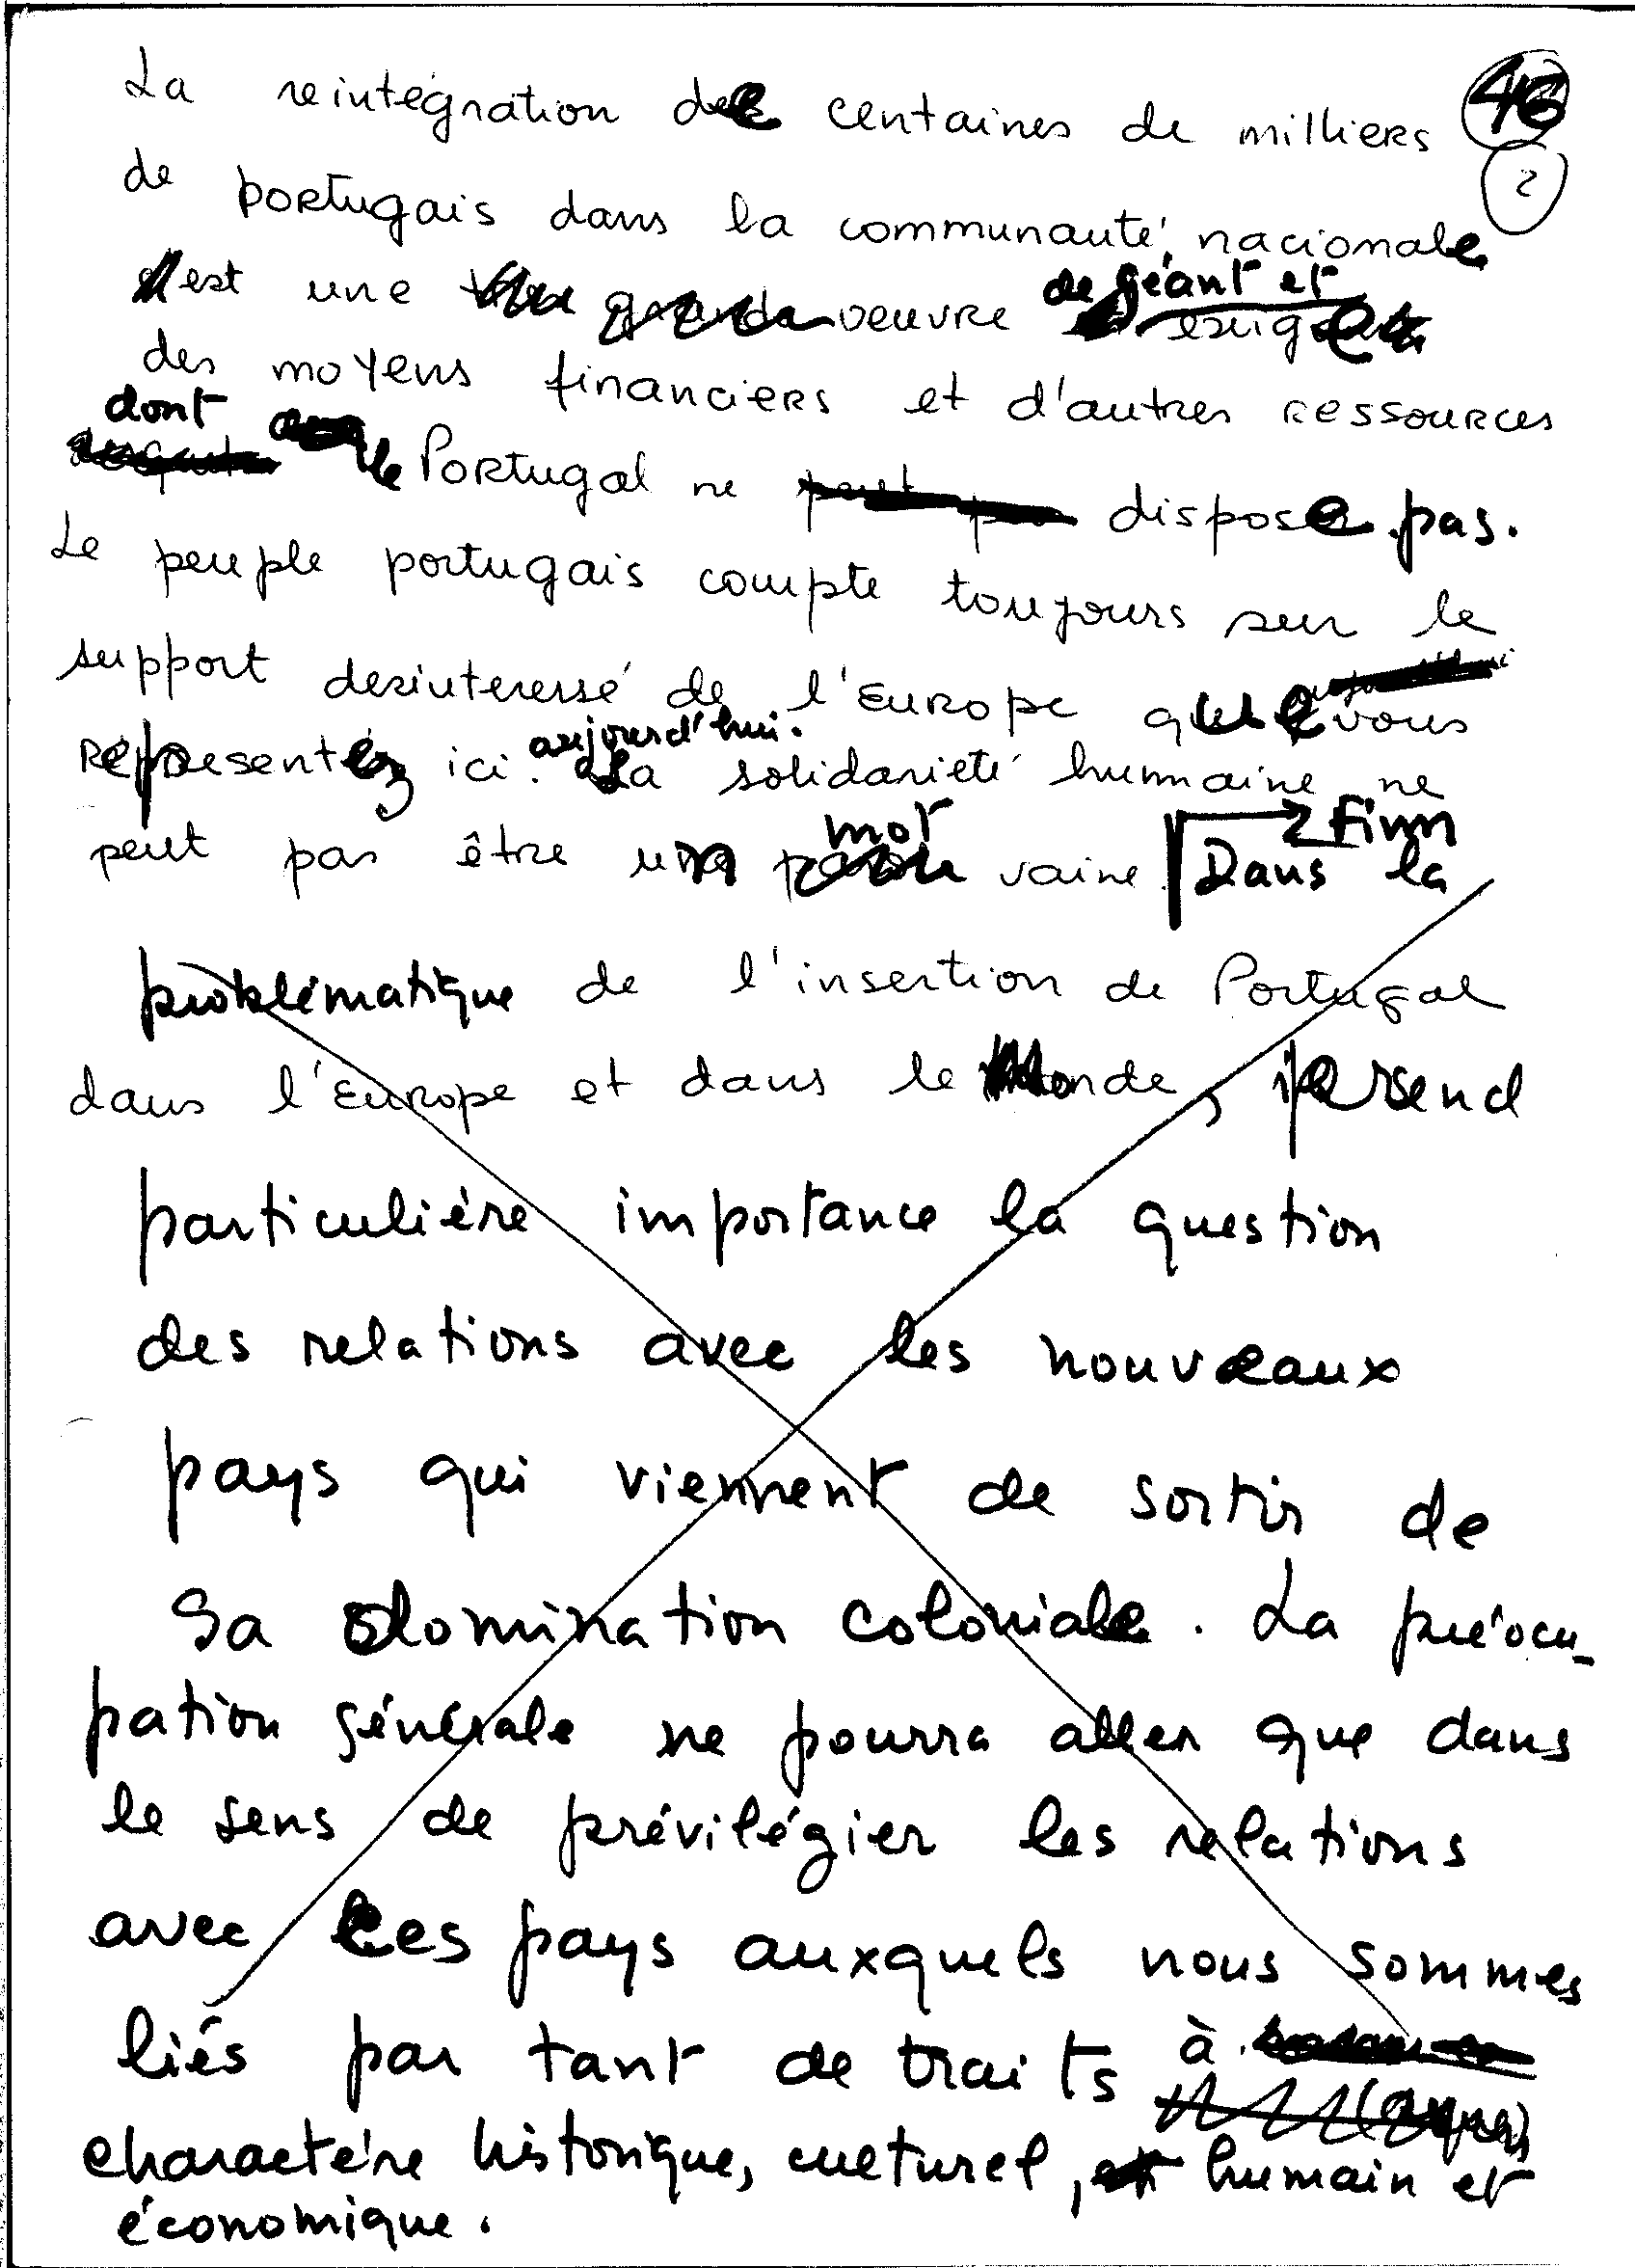 La reintégration de centaines de milliers 46
de portugais dans la communauté nacionale 2
est une oeuvre de géant et exige
des moyens financiers et d'autres ressources
dont le Portugal ne dispose pas.
Le peuple portugais compte toujours sur le
support desinteressé de l'Europe que vous
représentez ici aujourd'hui. La solidarieté humaine ne
peut pas être un mot vaine. Dans la
problématique de l'insertion de Portugal
dans l'Europe et dans le Monde, prend
particuliére importance la question
des relations avec les nouveaux
pays qui viennent de sortir de
sa domination coloniale. La préocu-
pation générale ne pourra aller que dans
le sens de prévilégier les relations
avec ces pays auxquels nous sommes
liés par tant de traits à
charactére historique, culturel, humain et
économique.